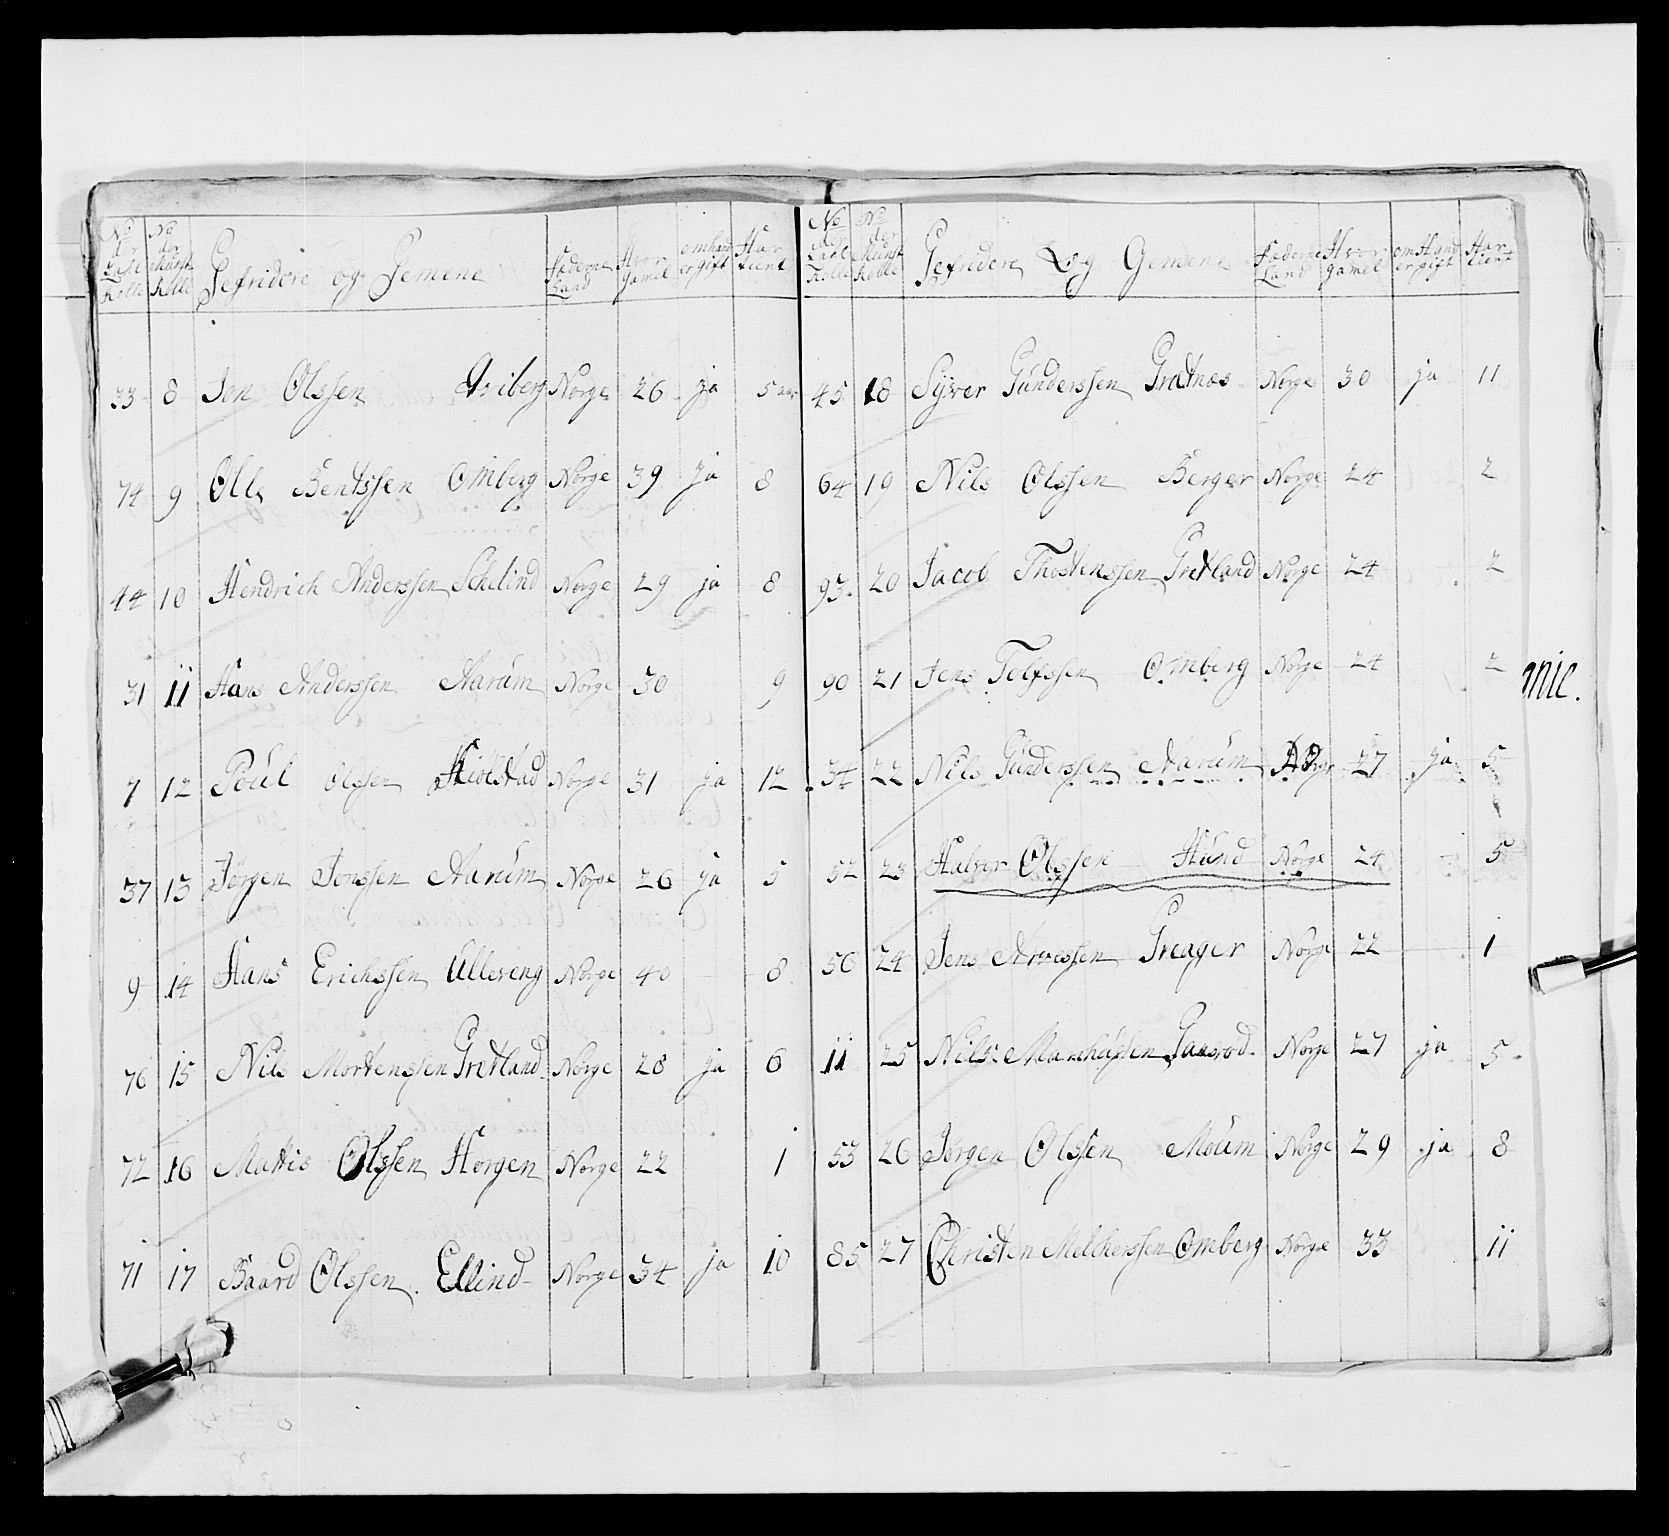 No der Karl Rolle No der Munst Rolle Gefridere og Gemene Fæderne Land Hvor gamel om hand er gift Har tient
33 8 Jon Olssen Norge 26 ja 5 aar
74 9 Olle Bentssen Omberg Norge 39 ja 8
44 10 Hendrich Anderssen Schelind Norge 29 ja 8
31 11 Hans Anderssen Aarum Norge 30 9
7 12 Poul Olssen Norge 31 ja 12
37 13 Jörgen Jonssen Aarum Norge 26 ja 5
9 14 Hans Erichssen Ullereng Norge 40 8
76 15 Nils Mortenssen Gretland Norge 28 ja 6
72 16 Mattis Olssen Horgen Norge 22 1
71 17 Baard Olssen Ellind Norge 34 ja 10
No der Karl Rolle No der Munst Rolle Gefridere Og Gemene Fæderne Land Hvor gamel om Hand er gift Har tient
45 18 Syver Gunderssen Grætnæs Norge 30 ja 11
64 19 Nils Olssen Berger Norge 24 2
93 20 Jacob Thostenssen Gretland Norge 24 2
90 21 Jens Tolfssen Omberg Norge 24 2
mie.
34 22 Nils Gunderssen Aarum Norge 27 ja 5
52 23 Halvor Olssen Hund Norge 24 5
56 24 Jens Arvessen Greager Norge 22 1
11 25 Nils Norge 27 ja 5
53 26 Jörgen Olssen Moum Norge 29 ja 8
85 27 Christen Melcherssen Omberg Norge 33 11